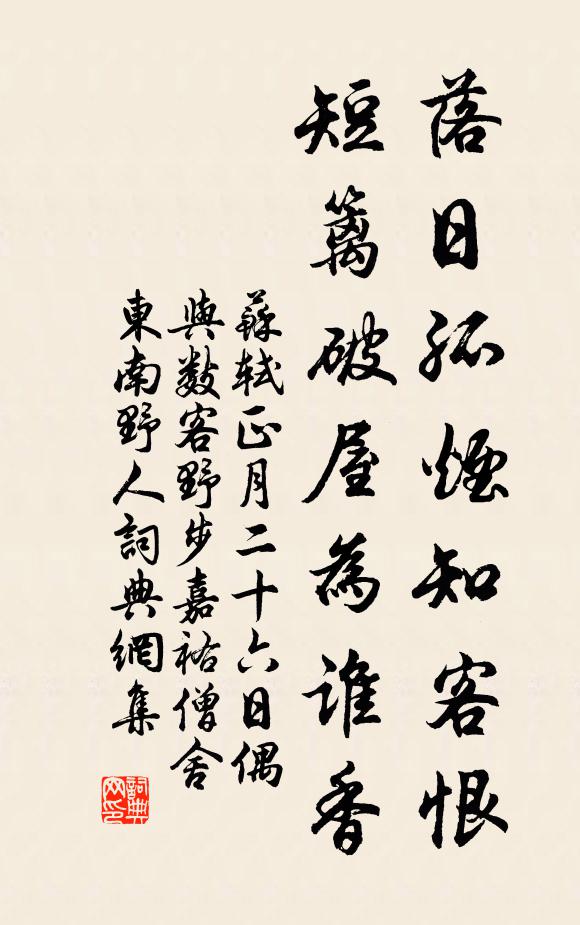 落日孤煙知客恨
短籬破屋為誰香
蘇軾正月二十六日偶
與數客野步嘉祐僧舍
東南野人詞典網集
詞典
网印